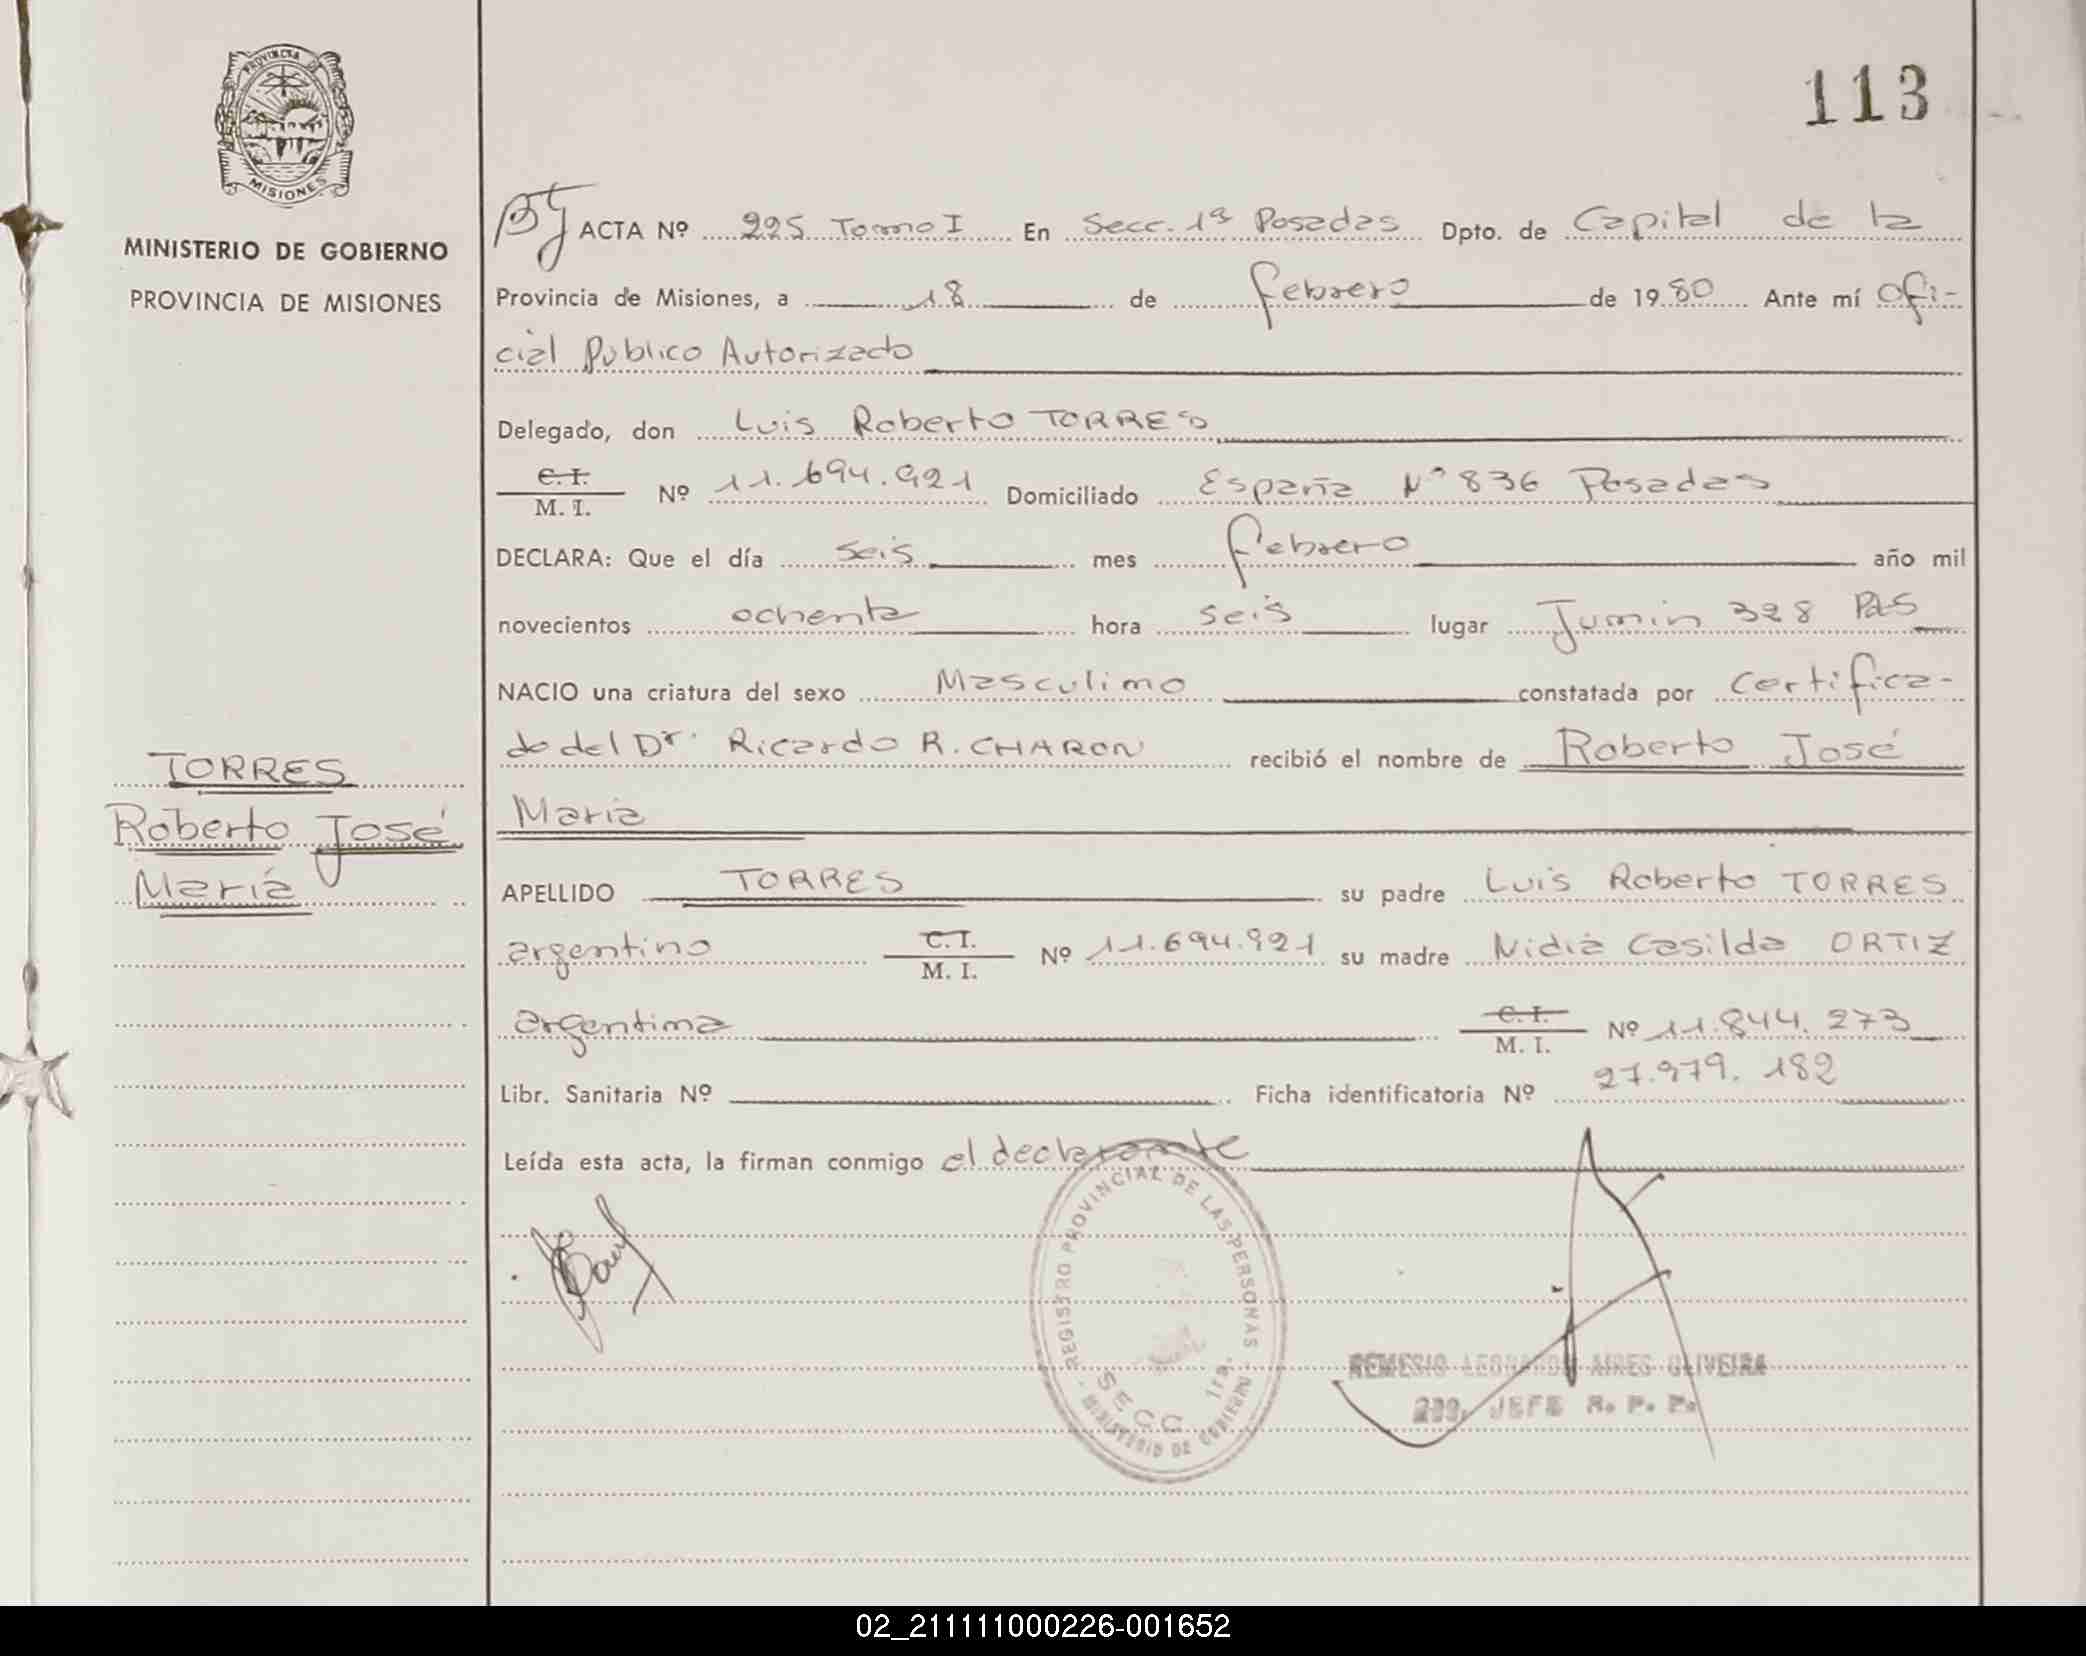 113
PROVINCIA DE
MISIONES
MINISTERIO DE GOBIERNO
PROVINCIA DE MISIONES
ACTA Nº 225 Tomo I En Secc. 1ª Posadas Dpto. de Capital de la
Provincia de Misiones, a 18 de febrero de 1980 Ante mí ofi-
cial Público Autorizado
Delegado, don Luis Roberto TORRES
C. I.
M. I. Nº 11.694.921 Domiciliado España Nº 836 Posadas
DECLARA: Que el día seis mes febrero año mil
novecientos ochenta hora seis lugar Junin 328 Pdas
NACIO una criatura del sexo Masculino constatada por certifica-
do del Dr. Ricardo R. CHARON recibió el nombre de Roberto José
María
TORRES
Roberto José
María
APELLIDO TORRES su padre Luis Roberto TORRES
argentino C. I. M. I. Nº 11.694.921 su madre Nidia Casilda ORTIZ
argentina C. I. M. I. Nº 11.844.273
Libr. Sanitaria Nº Ficha identificatoria Nº 27.979.182
Leída esta acta, la firman conmigo el declarante
REGISTRO PROVINCIAL DE LAS PERSONAS
SECC. 1ra.
MINISTERIO DE GOBIERNO
REMESIO LEONARDO AIRES OLIVEIRA
2do. JEFE R. P. P.
02_211111000226-001652